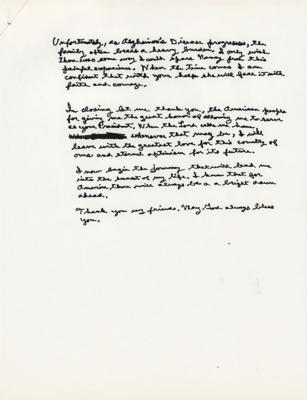 Unfortunately, as Alzheimer's Disease progresses, the
family often bears a heavy burden. I only wish
there was some way I could spare Nancy from this
painful experience. When the time comes I am
confident that with your help she will face it with
faith and courage.
In closing let me thank you, the American people
for giving me the great honor of allowing me to serve
as your President. When the Lord calls me home
whenever that may be, I will
leave with the greatest love for this country of
ours and eternal optimism for its future.
I now begin the journey that will lead me
into the sunset of my life. I know that for
America there will always be a bright dawn
ahead.
Thank you my friends. May God always bless
you.